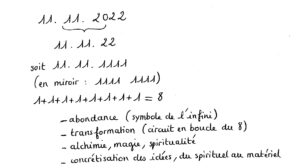 11. 11. 2022
11. 11. 22
soit 11. 11. 1111
(en miroir : 1111 1111)
1+1+1+1+1+1+1+1 = 8
- abondance (symbole de l'infini)
- transformation (circuit en boucle du 8)
- alchimie, magie, spiritualité
- concrétisation des idées, du spirituel au matériel